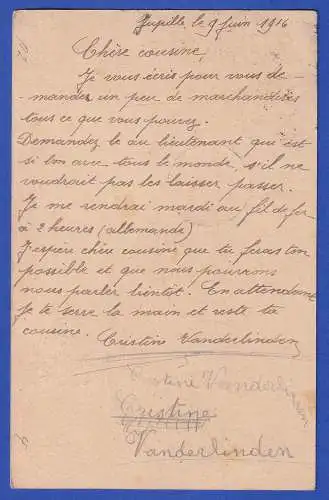 Jupille, le 9 juin 1916
Chère cousine,
Je vous écris pour vous de-
mander un peu de marchandises
tous ce que vous pouvez.
Demandez le au lieutenant qui est
si bon avec tous le monde, s'il ne
voudrait pas les laisser passer.
Je me rendrai mardi au fil de fer
à 2 heures (allemande)
J'espère chèu cousine que tu feras ton
possible et que nous pourrons
nous parler bientot. En attendant
Je te serre la main et reste ta
cousine. Cristine Vanderlinden
Cristine Vanderlinden
Cristine
Vanderlinden